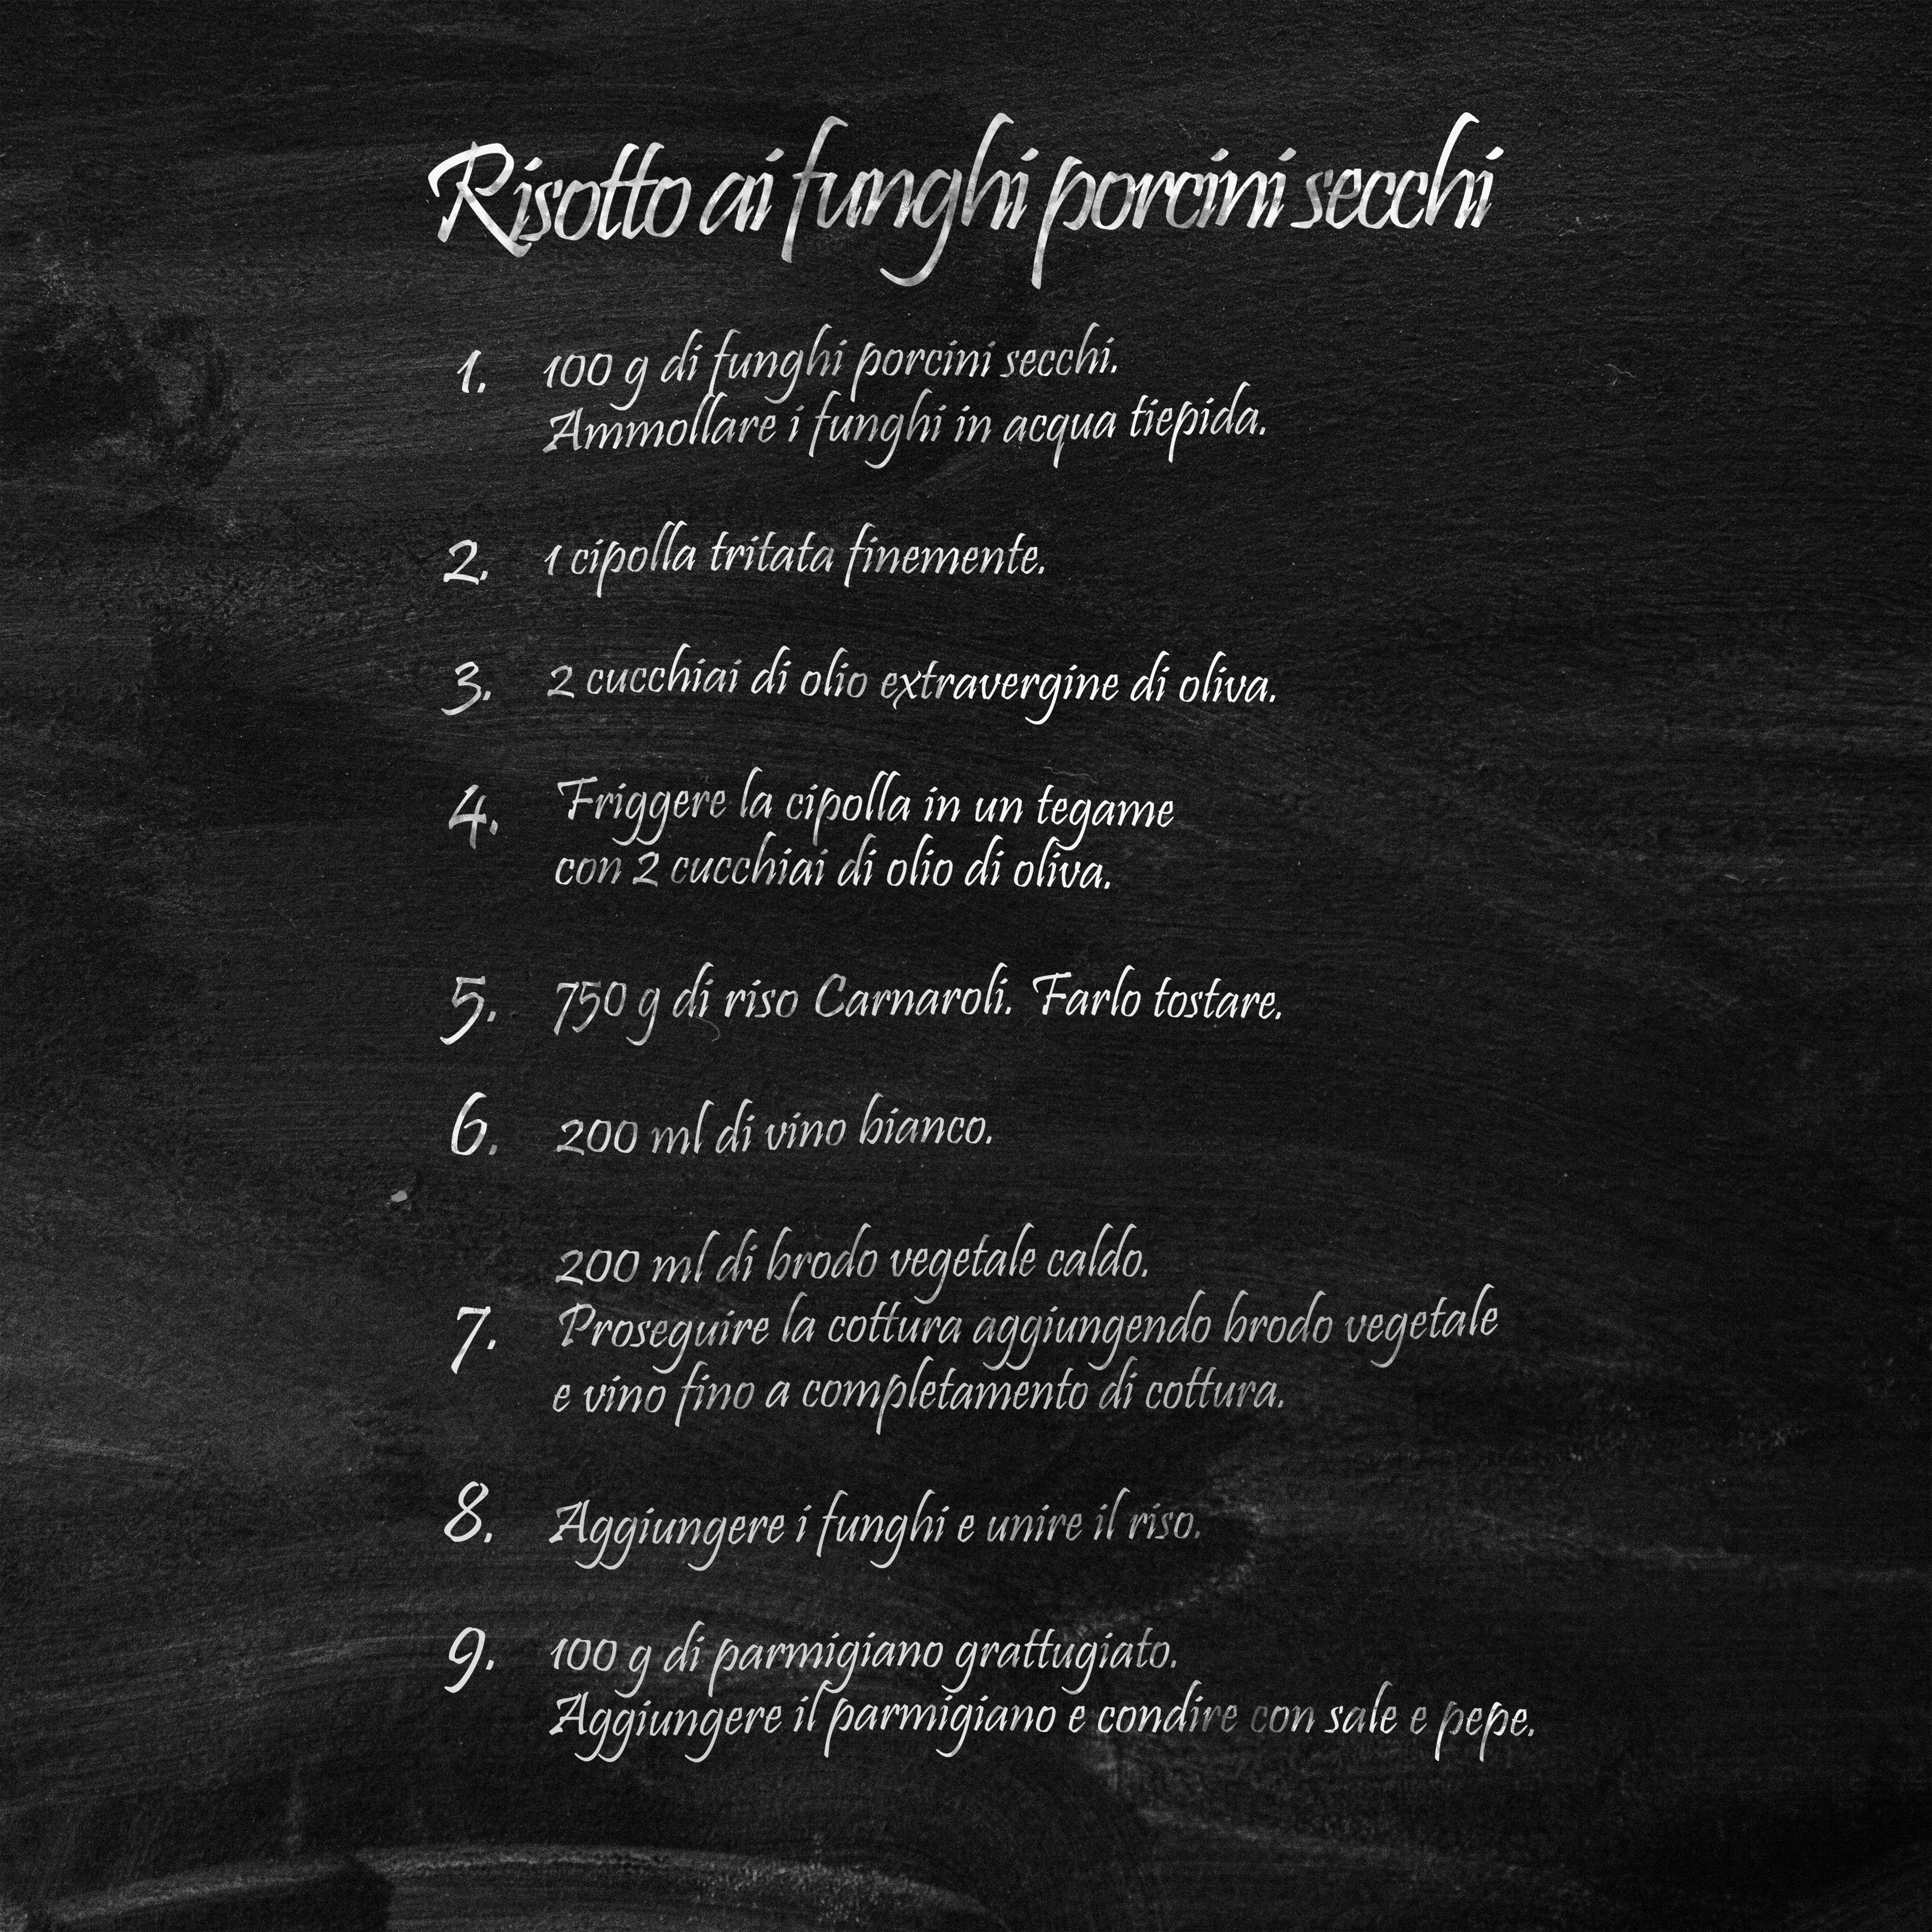 Risotto ai funghi porcini secchi
1. 100 g di funghi porcini secchi.
Ammollare i funghi in acqua tiepida.
2. 1 cipolla tritata finemente.
3. 2 cucchiai di olio extravergine di oliva.
4. Friggere la cipolla in un tegame
con 2 cucchiai di olio di oliva.
5. 750 g di riso Carnaroli. Farlo tostare.
6. 200 ml di vino bianco.
200 ml di brodo vegetale caldo.
7. Proseguire la cottura aggiungendo brodo vegetale
e vino fino a completamento di cottura.
8. Aggiungere i funghi e unire il riso.
9. 100 g di parmigiano grattugiato.
Aggiungere il parmigiano e condire con sale e pepe.